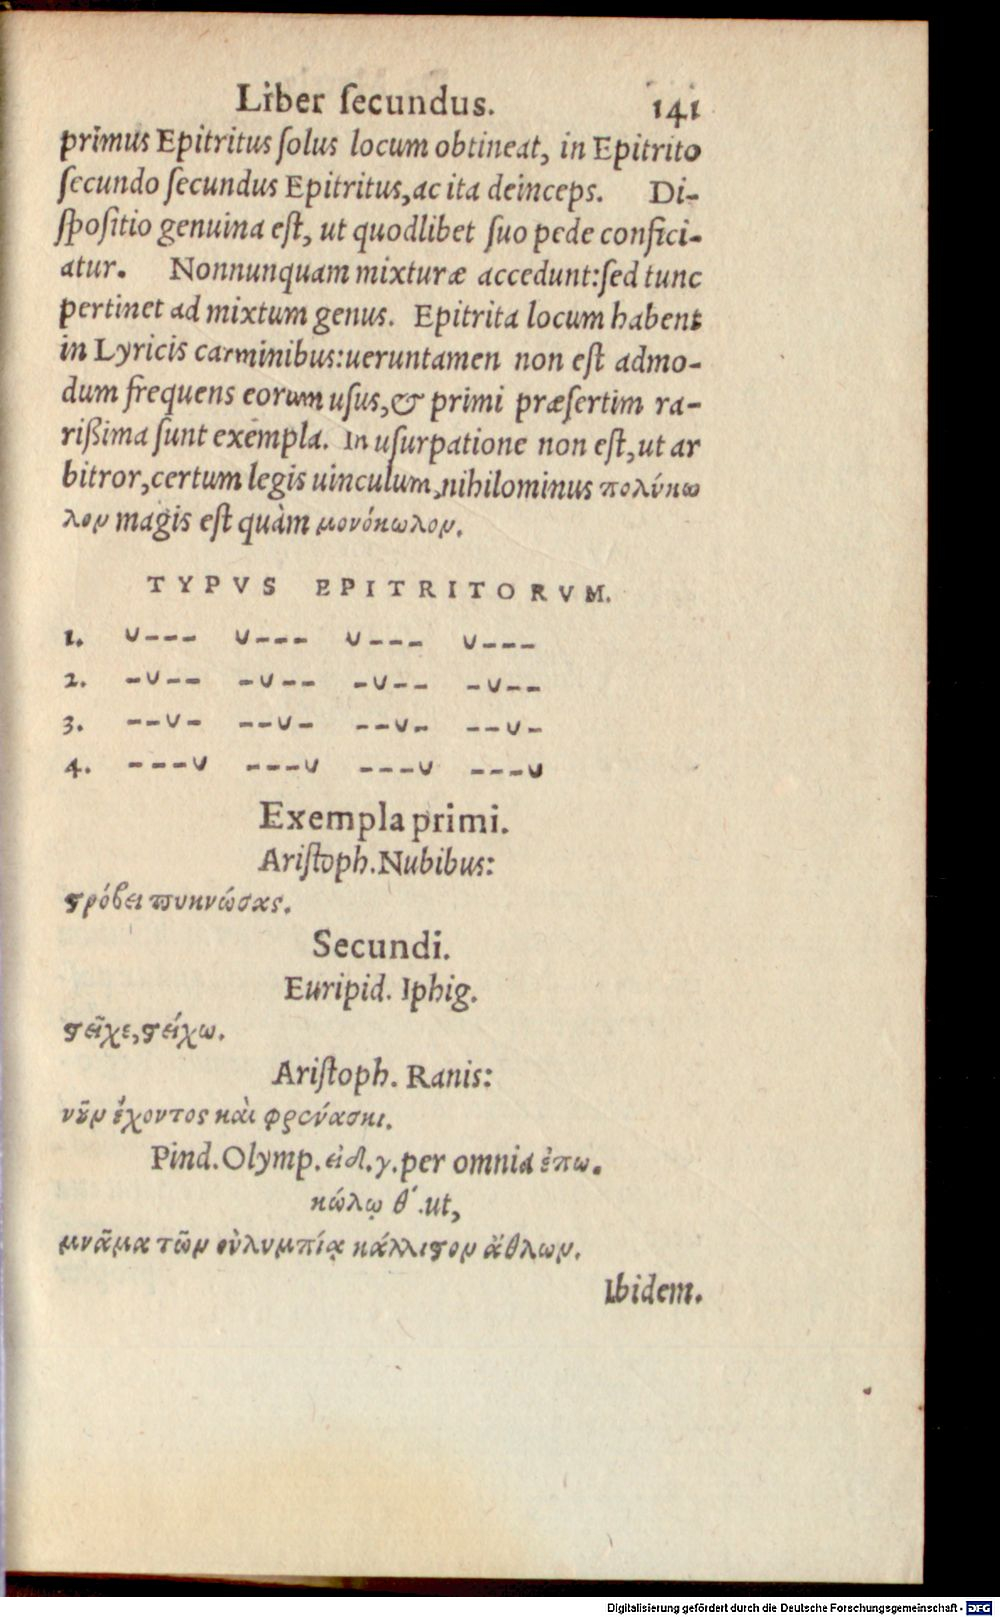 Liber ſecundus. 141
primus Epitritus ſolus locum obtineat, in Epitrito
ſecundo ſecundus Epitritus, ac ita deinceps. Di-
ſpoſitio genuina eſt, ut quodlibet ſuo pede confici-
atur. Nonnunquam mixturæ accedunt: ſed tunc
pertinet ad mixtum genus. Epitrita locum habent
in Lyricis carminibus: ueruntamen non eſt admo-
dum frequens eorum uſus, & primi præſertim ra-
riſsima ſunt exempla. In uſurpatione non eſt, ut ar
bitror, certum legis uinculum, nihilominus πολύκω
λον magis eſt quàm μονόκωλον.
TYPVS EPITRITORVM.
1. ∪--- ∪--- ∪--- ∪---
2. -∪-- -∪-- -∪-- -∪--
3. --∪- --∪- --∪- --∪-
4. ---∪ ---∪ ---∪ ---∪
Exempla primi.
Ariſtoph. Nubibus:
ϛρόβει πυκνώσας.
Secundi.
Euripid. Iphig.
ϛεῖχε, ϛείχω.
Ariſtoph. Ranis:
νοῦν ἔχοντος καὶ φρενάσκι.
Pind. Olymp. εἰδ. γ. per omnia ἐπω.
κώλῳ θ´. ut,
μνᾶμα τῶν οὐλυμπίᾳ κάλλιϛον ἄθλων.
Ibidem.
Digitalisierung gefördert durch die Deutsche Forschungsgemeinschaft - DFG